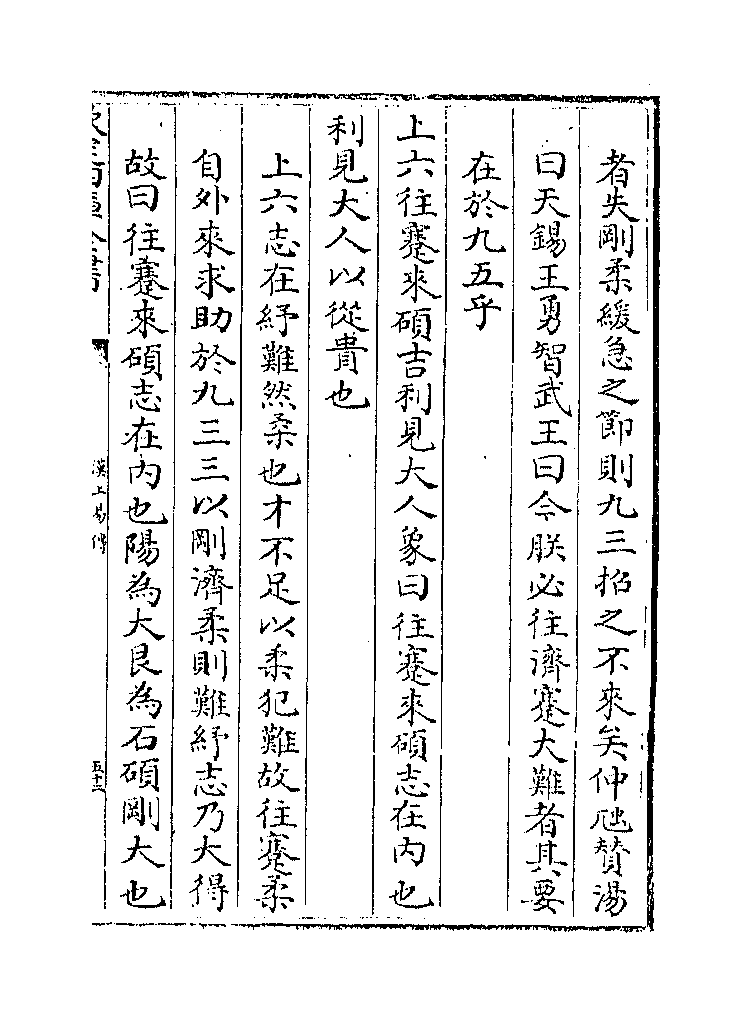 者失剛柔緩急之節則九三招之不來矣仲虺賛湯
曰天錫王勇智武王曰今朕必往濟蹇大難者其要
在於九五乎
上六往蹇來碩吉利見大人象曰往蹇來碩志在内也
利見大人以從貴也
上六志在紓難然柔也才不足以柔犯難故往蹇柔
自外來求助於九三三以剛濟柔則難紓志乃大得
故曰往蹇來碩志在内也陽為大艮為石碩剛大也
欽定四庫全書
漢上易傳